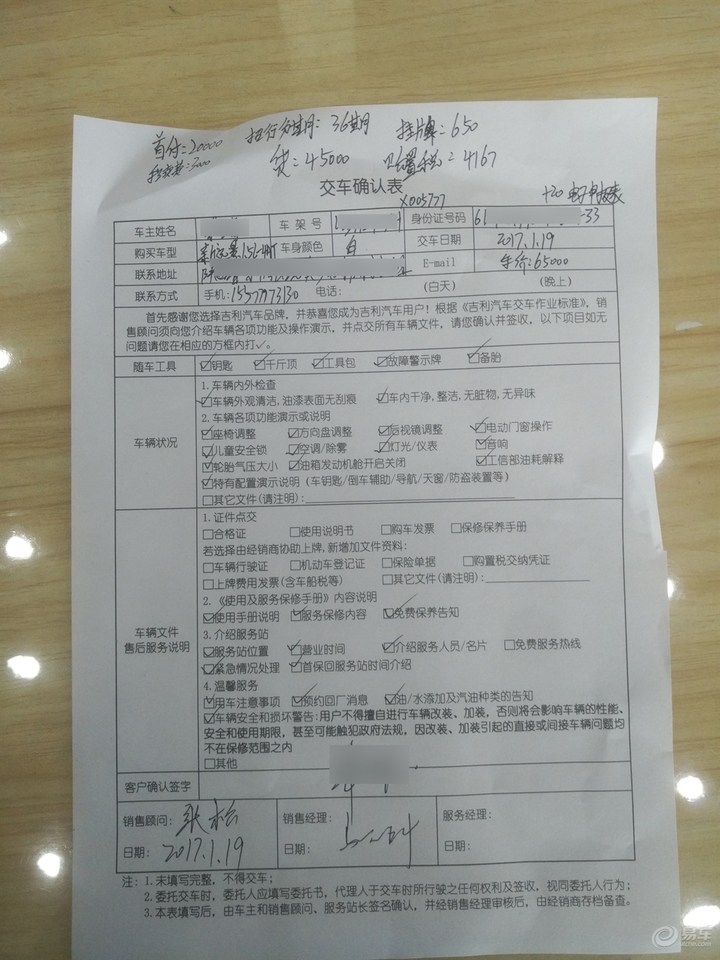 首付:20000 招行分期: 36期 挂牌: 650
3000 贷: 45000 购置税: 4167
交车确认表
X005777
车主姓名 车架号 身份证号码 61 33
购买车型 车身颜色 白 交车日期 2017.1.19
联系地址 E-mail 车价: 65000
联系方式 手机: 电话: (白天) (晚上)
首先感谢您选择吉利汽车品牌,并恭喜您成为吉利汽车用户!根据《吉利汽车交车作业标准》,销
售顾问须向您介绍车辆各项功能及操作演示,并点交所有车辆文件,请您确认并签收,以下项目如无
问题请您在相应的方框内打✓。
随车工具 ☑钥匙 ☑千斤顶 ☑工具包 ☑故障警示牌 ☑备胎
1. 车辆内外检查
☑车辆外观清洁,油漆表面无刮痕 ☑车内干净,整洁,无脏物,无异味
2. 车辆各项功能演示或说明
车辆状况 ☑座椅调整 ☑方向盘调整 ☑后视镜调整 ☑电动门窗操作
☑儿童安全锁 ☑空调/除雾 ☑灯光/仪表 ☑音响
☑轮胎气压大小 ☑油箱发动机舱开启关闭 ☑工信部油耗解释
☑特有配置演示说明 (车钥匙/倒车辅助/导航/天窗/防盗装置等)
□其它文件(请注明):
1. 证件点交
□合格证 □使用说明书 □购车发票 □保修保养手册
若选择由经销商协助上牌,新增加文件资料:
□车辆行驶证 □机动车登记证 □保险单据 □购置税交纳凭证
□上牌费用发票(含车船税等) □其它文件(请注明):
2. 《使用及服务保修手册》内容说明
☑使用手册说明 ☑服务保修内容 ☑免费保养告知
车辆文件
售后服务说明
3. 介绍服务站
☑服务站位置 ☑营业时间 ☑介绍服务人员/名片 □免费服务热线
☑紧急情况处理 ☑首保回服务站时间介绍
4. 温馨服务
☑用车注意事项 ☑预约回厂消息 ☑油/水添加及汽油种类的告知
☑车辆安全和损坏警告:用户不得擅自进行车辆改装、加装,否则将会影响车辆的性能、
安全和使用期限,甚至可能触犯政府法规,因改装、加装引起的直接或间接车辆问题均
不在保修范围之内
□其他
客户确认签字
销售顾问: 张松 销售经理: 服务经理:
日期: 2017.1.19 日期: 日期:
注: 1. 未填写完整,不得交车;
2. 委托交车时,委托人应填写委托书,代理人于交车时所行驶之任何权利及签收,视同委托人行为;
3. 本表填写后,由车主和销售顾问、服务站长签名确认,并经销售经理审核后,由经销商存档备查。
易车